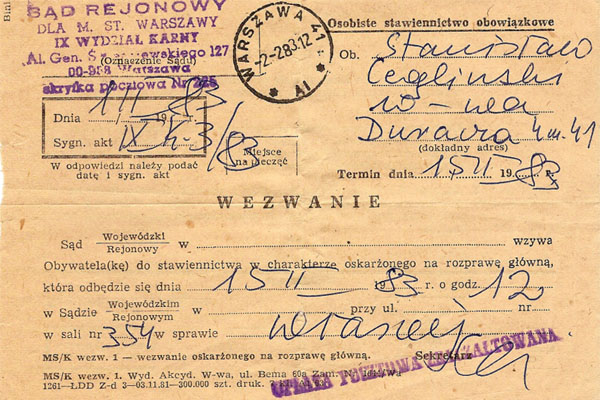 SĄD REJONOWY
DLA M. ST. WARSZAWY
IX WYDZIAŁ KARNY
Al. Gen. Świerczewskiego 127
(Oznaczenie Sądu)
00-958 Warszawa
skrytka pocztowa Nr
WARSZAWA 41
-2-2.83-12
A1
Osobiste stawiennictwo obowiązkowe
Ob. Stanisław
Cegliński
w-wa
4 m. 41
(dokładny adres)
Termin dnia 15 II 1983 r.
Dnia 1 II 1983
Sygn. akt IX K-3/83
W odpowiedzi należy podać
datę i sygn. akt
Miejsce
na pieczęć
WEZWANIE
Sąd Wojewódzki
Rejonowy w wzywa
Obywatela(kę) do stawiennictwa w charakterze oskarżonego na rozprawę główną,
która odbędzie się dnia 15 II 1983 r. o godz. 12
w Sądzie Wojewódzkim
Rejonowym w przy ul. nr
w sali nr 354 w sprawie własnej
MS/K wezw. 1 — wezwanie oskarżonego na rozprawę główną.
Sekretarz
OPŁATA POCZTOWA ZRYCZAŁTOWANA
MS/K wezw. 1. Wyd. Akcyd. W-wa, ul. Bema 60a Zam. Nr
1261—ŁDD Z-d 3—03.11.81—300.000 szt. druk.